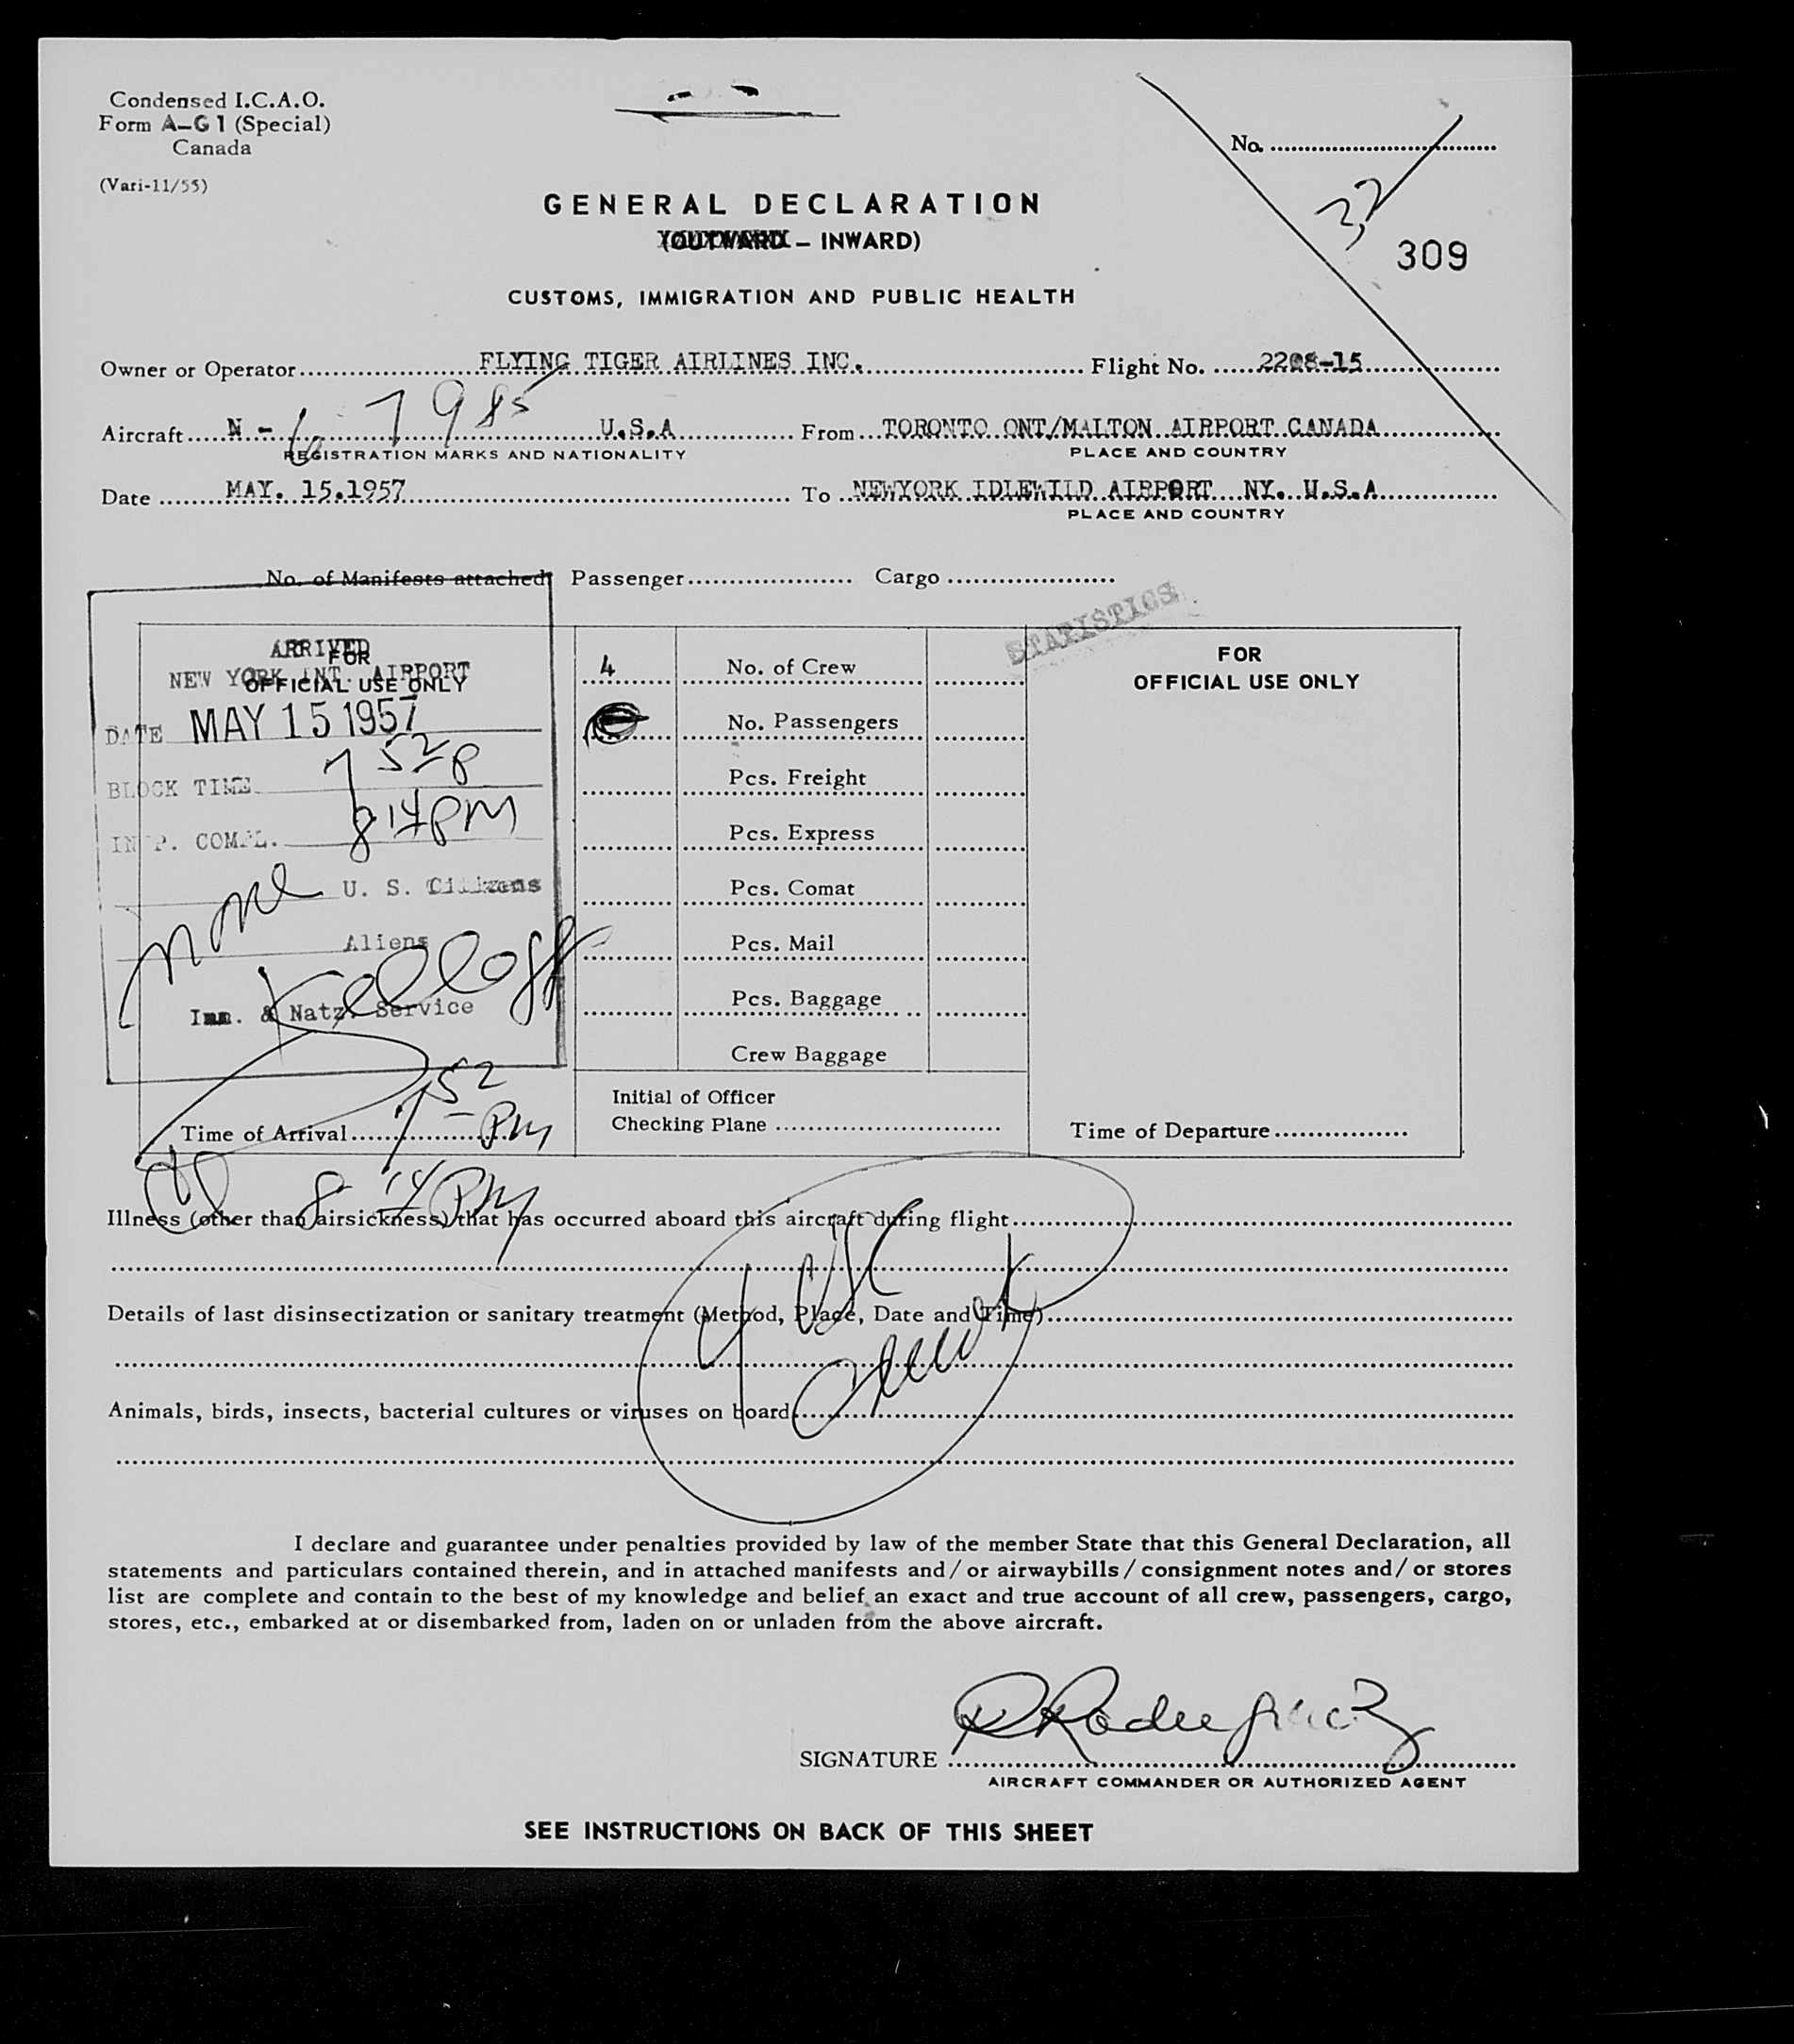 Condensed I.C.A.O.
Form A-G 1 (Special)
Canada
(Vari-11/55)
No. ....................
32
309
GENERAL DECLARATION
(OUTWARD – INWARD)
CUSTOMS, IMMIGRATION AND PUBLIC HEALTH
Owner or Operator FLYING TIGER AIRLINES INC. Flight No. 2208-15
Aircraft N - 6 7985 U.S.A From TORONTO ONT/MALTON AIRPORT CANADA
REGISTRATION MARKS AND NATIONALITY PLACE AND COUNTRY
Date MAY. 15.1957 To NEWYORK IDLEWILD AIRPORT NY. U.S.A
PLACE AND COUNTRY
No. of Manifests attached: Passenger.................... Cargo ....................
STATISTICS
FOR
OFFICIAL USE ONLY
ARRIVED
NEW YORK INT. AIRPORT
DATE MAY 15 1957
BLOCK TIME 7 52 P
INSP. COMPL. 8 14 PM
none U. S. Citizens
Aliens
Kellogg
Imm. & Natz. Service
Time of Arrival 7 52 PM
8 14 PM
4 No. of Crew
No. Passengers
Pcs. Freight
Pcs. Express
Pcs. Comat
Pcs. Mail
Pcs. Baggage
Crew Baggage
Initial of Officer
Checking Plane ....................
FOR
OFFICIAL USE ONLY
Time of Departure....................
Illness (other than airsickness) that has occurred aboard this aircraft during flight....................
Details of last disinsectization or sanitary treatment (Method, Place, Date and Time)....................
4 USC
Animals, birds, insects, bacterial cultures or viruses on board....................
I declare and guarantee under penalties provided by law of the member State that this General Declaration, all
statements and particulars contained therein, and in attached manifests and/or airwaybills/consignment notes and/or stores
list are complete and contain to the best of my knowledge and belief an exact and true account of all crew, passengers, cargo,
stores, etc., embarked at or disembarked from, laden on or unladen from the above aircraft.
SIGNATURE
AIRCRAFT COMMANDER OR AUTHORIZED AGENT
SEE INSTRUCTIONS ON BACK OF THIS SHEET